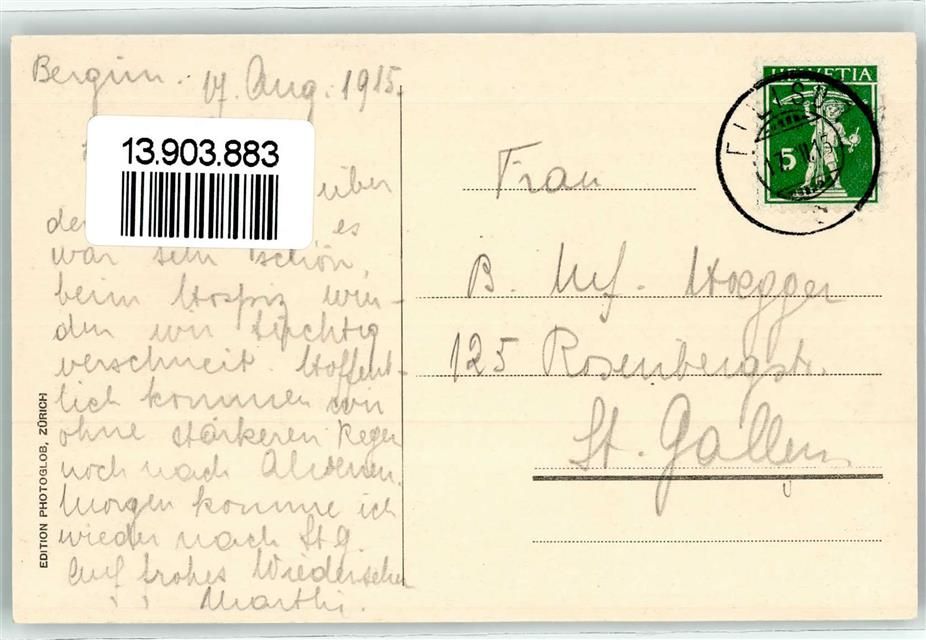 Bergün. 17. Aug. 1915.
13.903.883
über
es
war sehr schön,
beim Hospiz wur-
den wir tüchtig
verschneit. Hoffent-
lich kommen wir
ohne stärkeren Regen
noch nach
Morgen komme ich
wieder nach St. G.
Auf frohes Wiedersehen
Marthi.
EDITION PHOTOGLOB, ZÜRICH
HELVETIA
5
Frau
B. Hoegger
125 Rosenbergstr.
St. Gallen